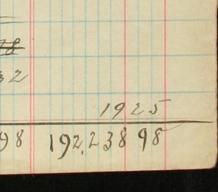 32
1925
98 192,238 98